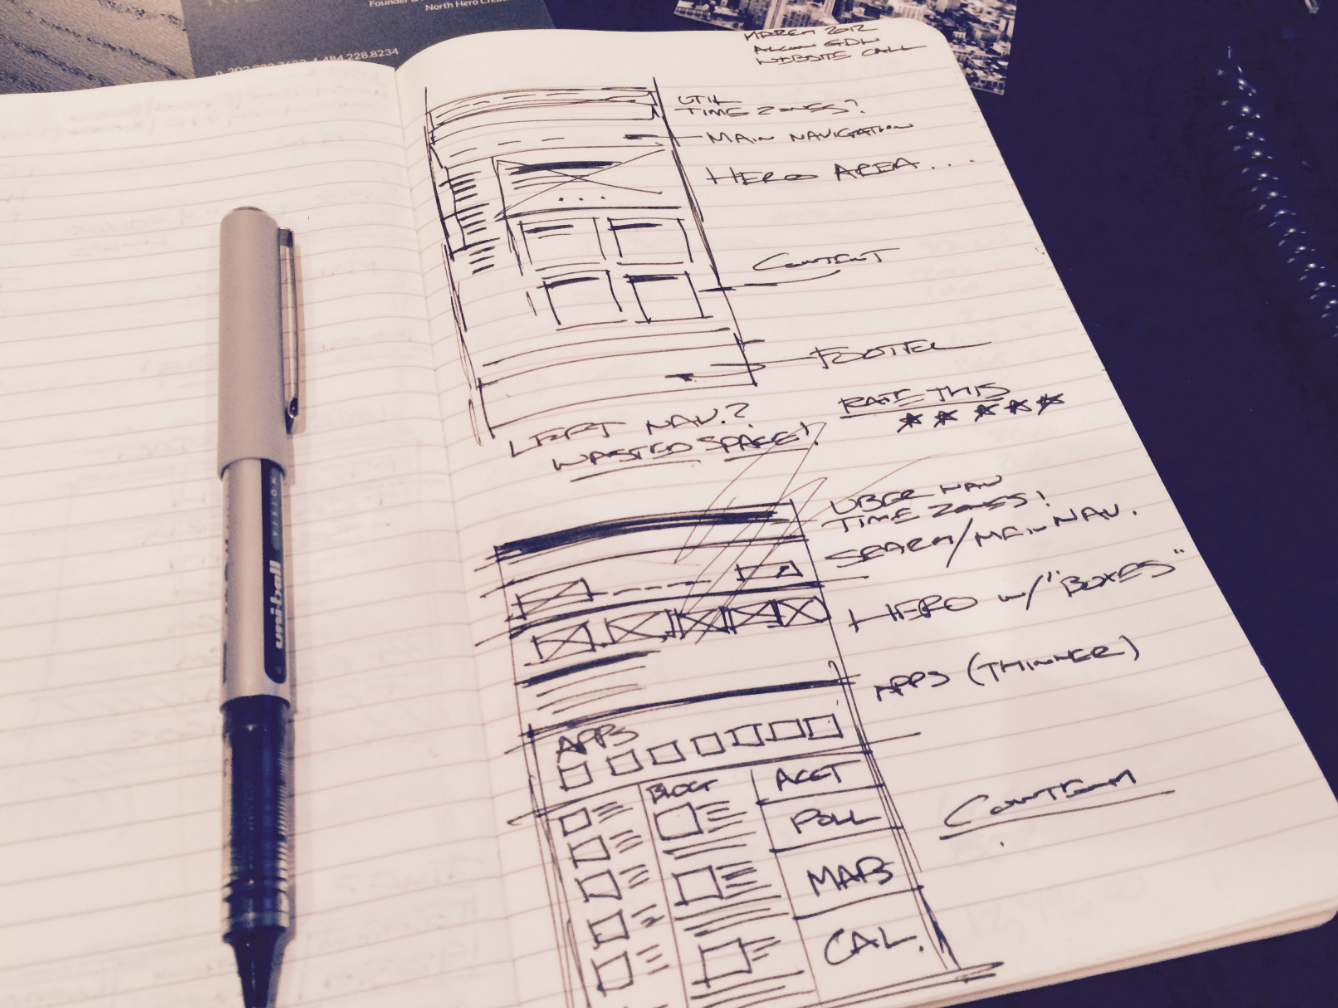 Founder &
North Hero Crea
228.8234
MARCH 2012
WEBSITE CALL
UTIL
TIME ZONES?
MAIN NAVIGATION
HERO AREA....
CONTENT
FOOTER
RATE THIS
LEFT NAV.?
WASTED SPACE!
UBER NAV
TIME ZONES!
SEARCH/MAIN NAV.
HERO w/"BOXES"
APPS (THINNER)
APPS
BLOG
ACCT
POLL
MAPS
CAL.
CONTENT
uni-ball
VISION